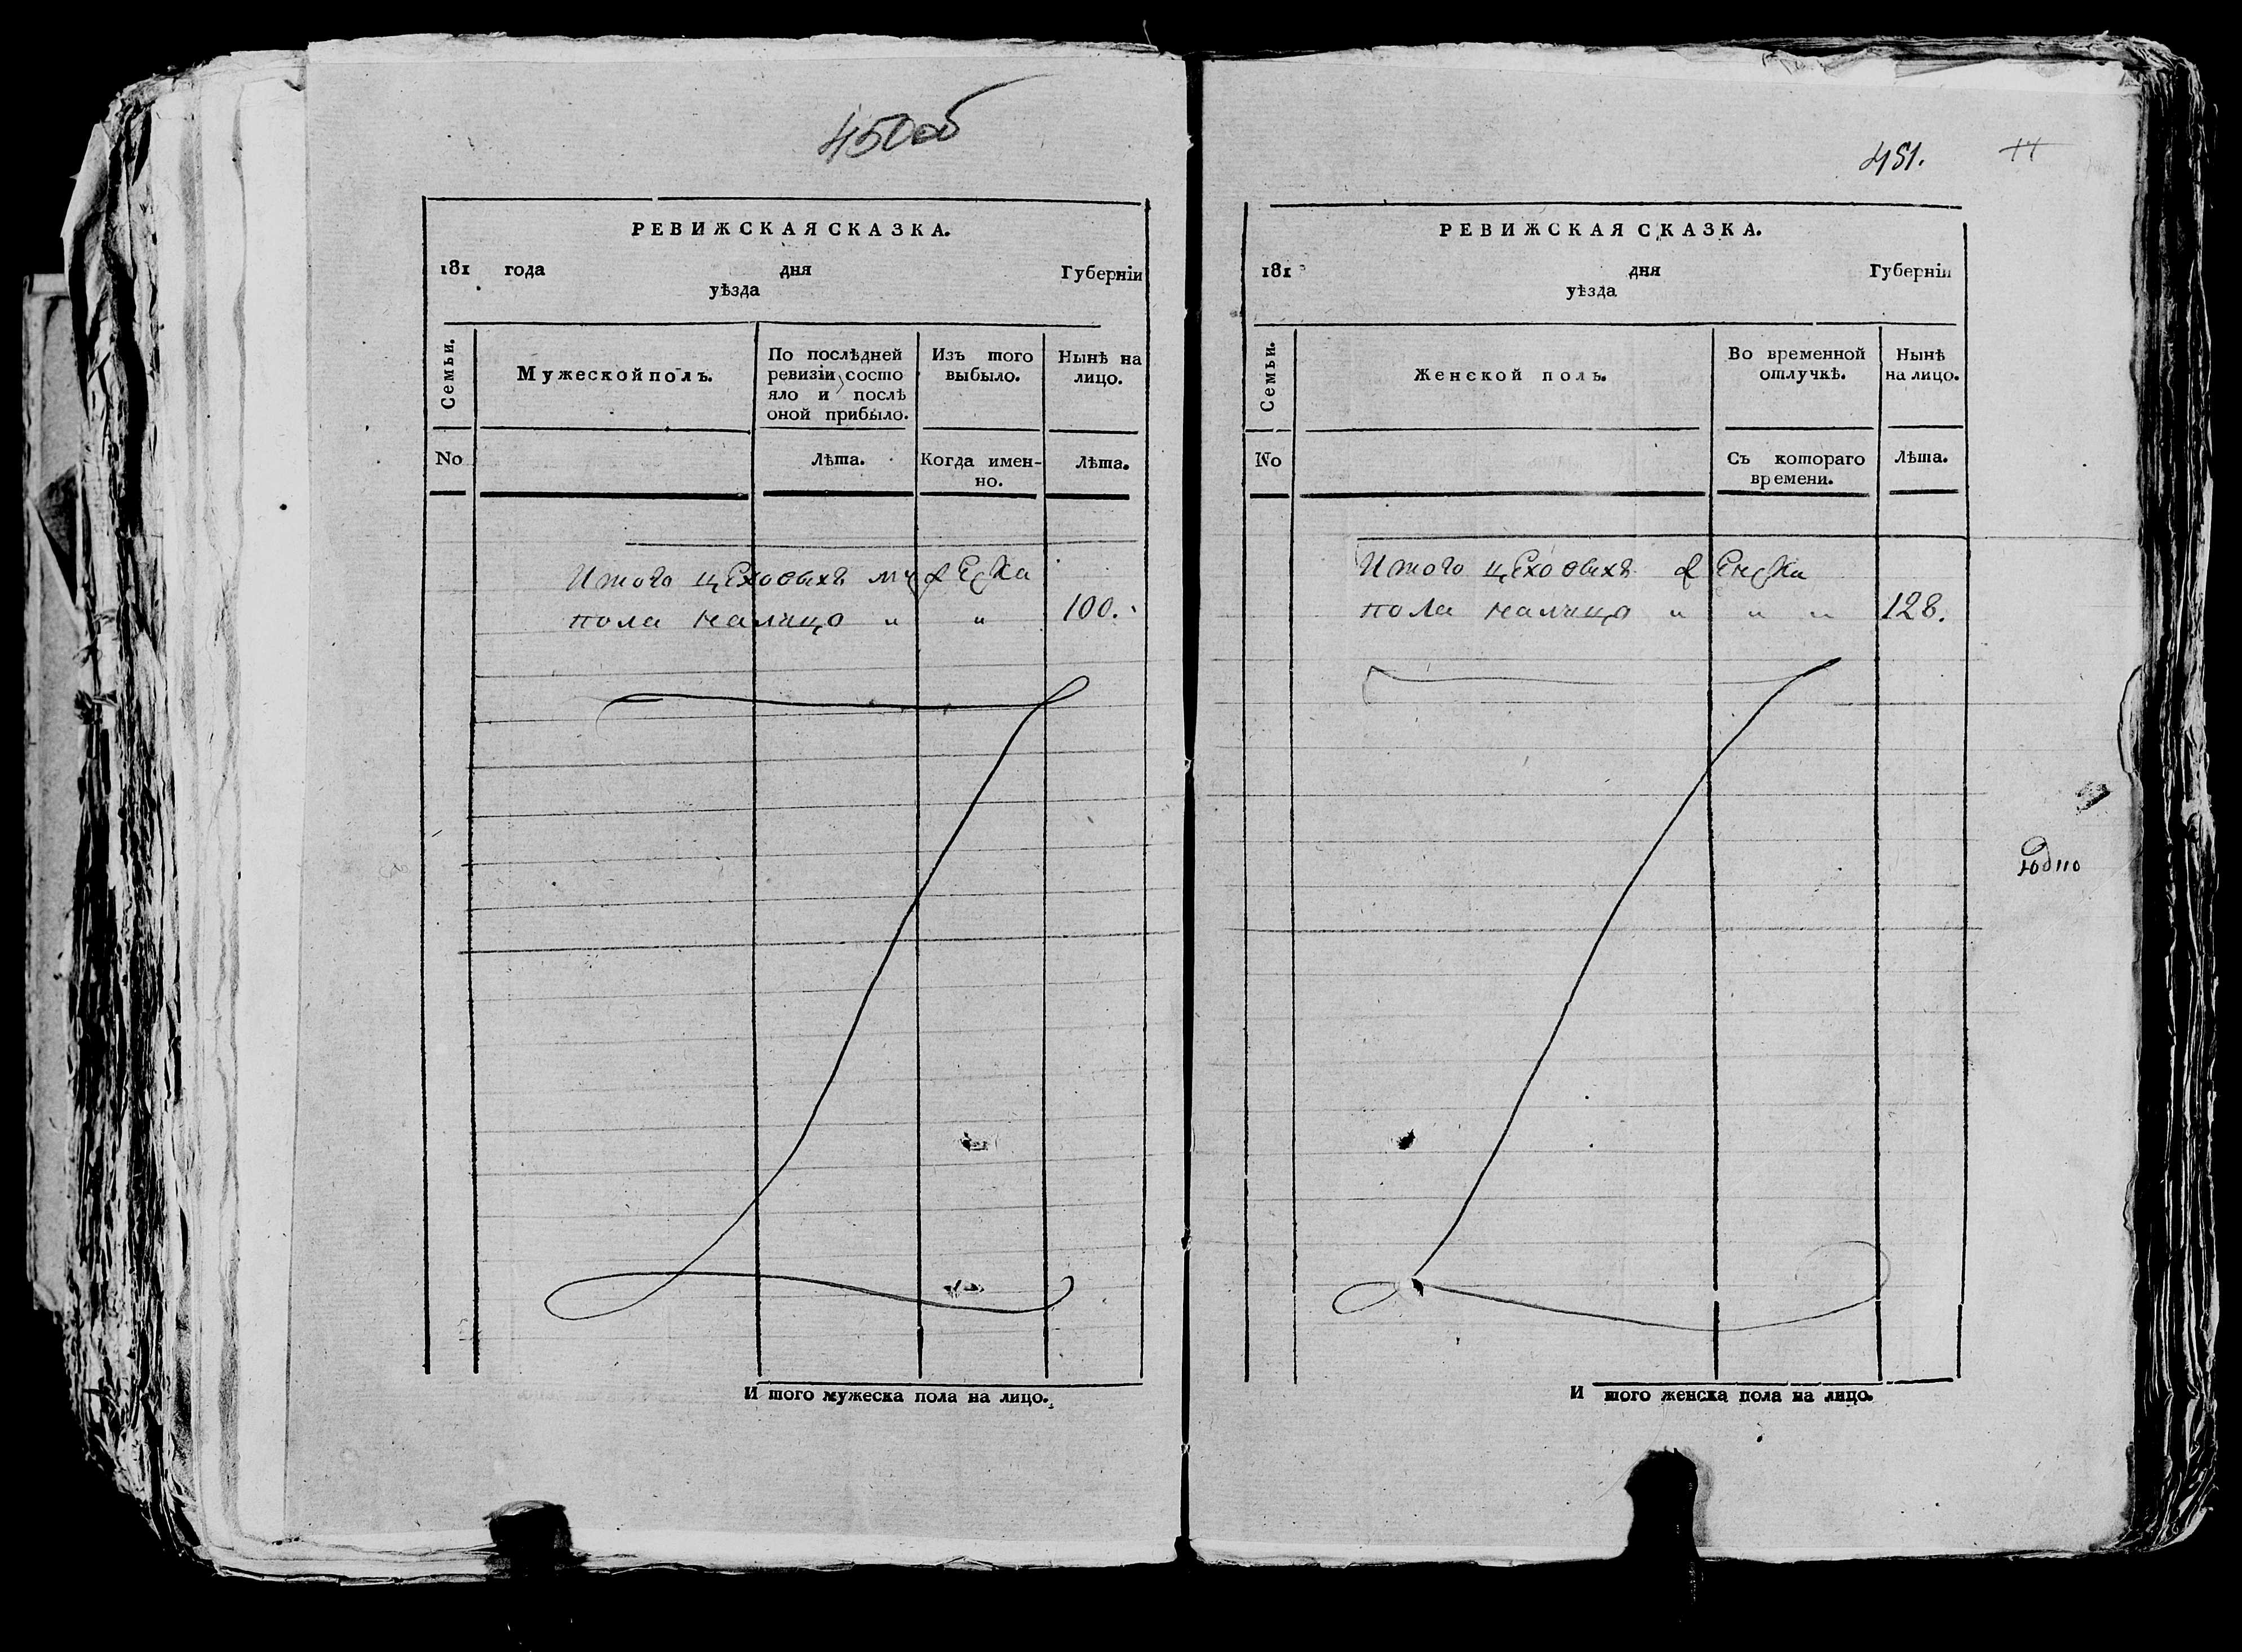 450об
РЕВИЖСКАЯ СКАЗКА.
181 года дня Губернїи
уѣзда
Семьи.
Мужеской полъ.
По послѣдней ревизїи состо
яло и послѣ оной прибыло.
Изъ того выбыло.
Нынѣ на лицо.
No
Лѣта.
Когда имен-
но.
Лѣта.
Итого цеховыхъ мужеска
пола налицо " " 100.
И того мужеска пола на лицо.
451.
РЕВИЖСКАЯ СКАЗКА.
181 дня Губернїи
уѣзда
Семьи.
Женской полъ.
Во временной отлучкѣ.
Нынѣ на лицо.
No
Съ котораго времени.
Лѣта.
Итого цеховыхъ женска
пола налицо " " " 128.
И того женска пола на лицо.